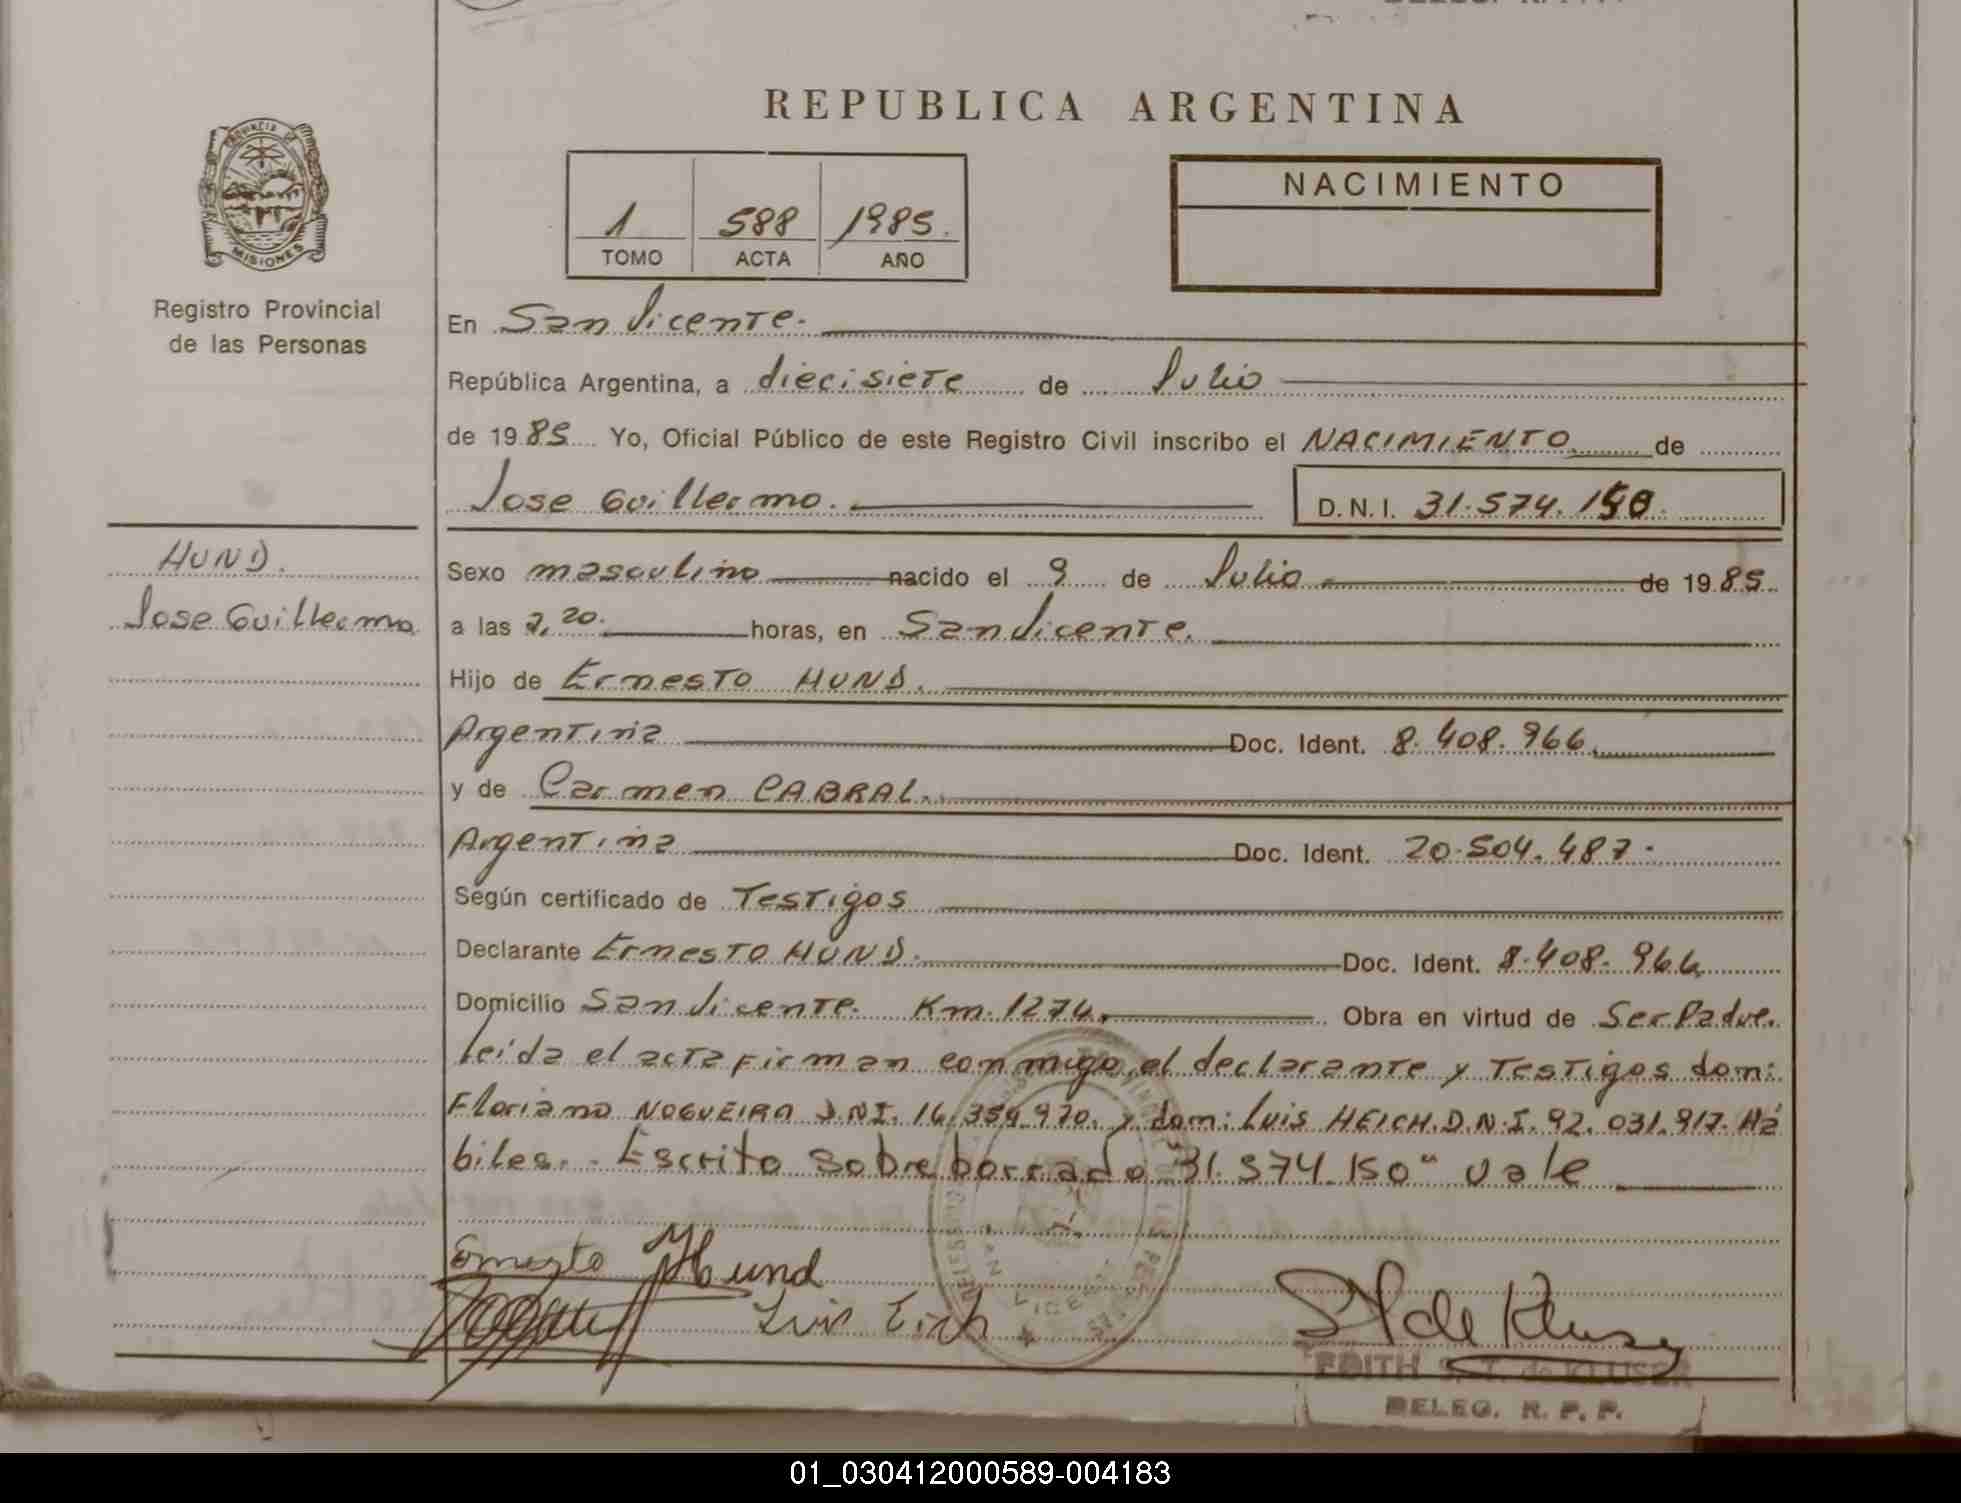 REPUBLICA ARGENTINA
PROVINCIA DE
MISIONES
Registro Provincial
de las Personas
1 588 1985.
TOMO ACTA AÑO
NACIMIENTO
En San Vicente.
República Argentina, a diecisiete de Julio
de 1985 Yo, Oficial Público de este Registro Civil inscribo el NACIMIENTO de
Jose Guillermo. D.N.I. 31.574.150.
HUND.
Jose Guillermo
Sexo masculino nacido el 9 de Julio de 1985.
a las 7,20. horas, en San Vicente.
Hijo de Ernesto HUND.
Argentina Doc. Ident. 8.408.966.
y de Carmen CABRAL.
Argentina Doc. Ident. 20.504.487.
Según certificado de Testigos
Declarante Ernesto HUND. Doc. Ident. 8.408.966.
Domicilio San Vicente. Km. 1274. Obra en virtud de Ser Padre.
leida el acta firman conmigo el declarante y Testigos dom:
Floriano NOGUEIRA D.N.I. 16.359.970. y dom: Luis HEICH. D.N.I. 92.031.917. Há
biles.. Escrito sobre borrado "31.574.150" vale
Ernesto Hund
Luis Eich
S T de Kluser
EDITH S. T. de KLUSER
DELEG. R. P. P.
01_030412000589-004183